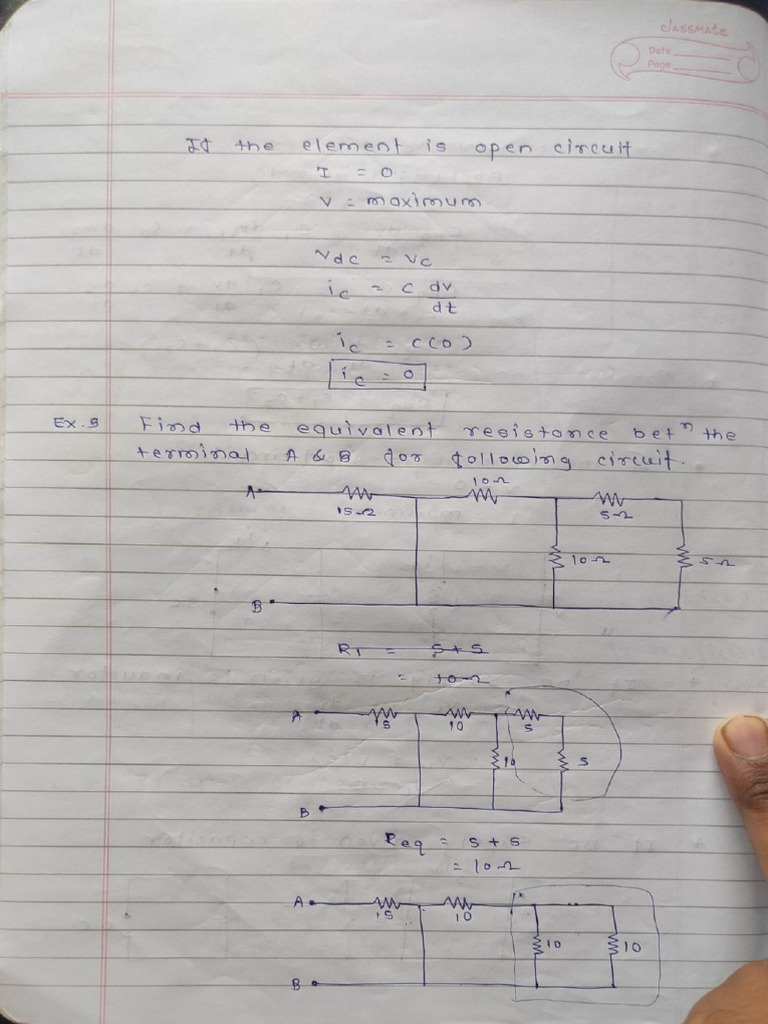 classmate
Date
Page
If the element is open circuit
I = 0
V = maximum
Vdc = Vc
ic = C dv/dt
ic = C(0)
ic = 0
Ex. 9 Find the equivalent resistance betⁿ the
terminal A & B for following circuit.
10Ω
A
15Ω
5Ω
10Ω
5Ω
B
R1 = 5+5
= 10Ω
A
15
10
5
10
5
B
Req = 5+5
= 10Ω
A
15
10
10
10
B